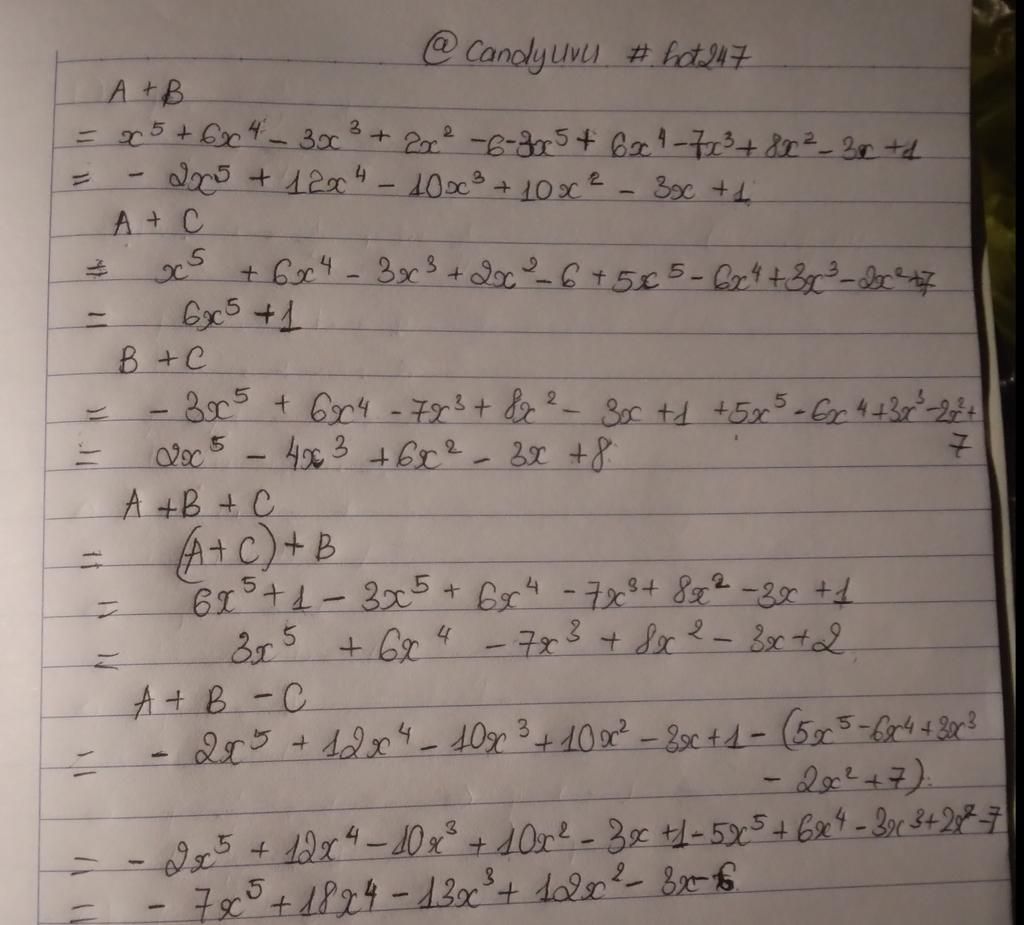 @candyuvu # hot247
A + B
= x⁵ + 6x⁴ - 3x³ + 2x² - 6 - 3x⁵ + 6x⁴ - 7x³ + 8x² - 3x + 1
= - 2x⁵ + 12x⁴ - 10x³ + 10x² - 3x + 1
A + C
= x⁵ + 6x⁴ - 3x³ + 2x² - 6 + 5x⁵ - 6x⁴ + 3x³ - 2x² + 7
= 6x⁵ + 1
B + C
= - 3x⁵ + 6x⁴ - 7x³ + 8x² - 3x + 1 + 5x⁵ - 6x⁴ + 3x³ - 2x² +
7
= 2x⁵ - 4x³ + 6x² - 3x + 8
A + B + C
= (A + C) + B
= 6x⁵ + 1 - 3x⁵ + 6x⁴ - 7x³ + 8x² - 3x + 1
= 3x⁵ + 6x⁴ - 7x³ + 8x² - 3x + 2
A + B - C
= - 2x⁵ + 12x⁴ - 10x³ + 10x² - 3x + 1 - (5x⁵ - 6x⁴ + 3x³
- 2x² + 7).
= - 2x⁵ + 12x⁴ - 10x³ + 10x² - 3x + 1 - 5x⁵ + 6x⁴ - 3x³ + 2x² - 7
= - 7x⁵ + 18x⁴ - 13x³ + 12x² - 3x - 6